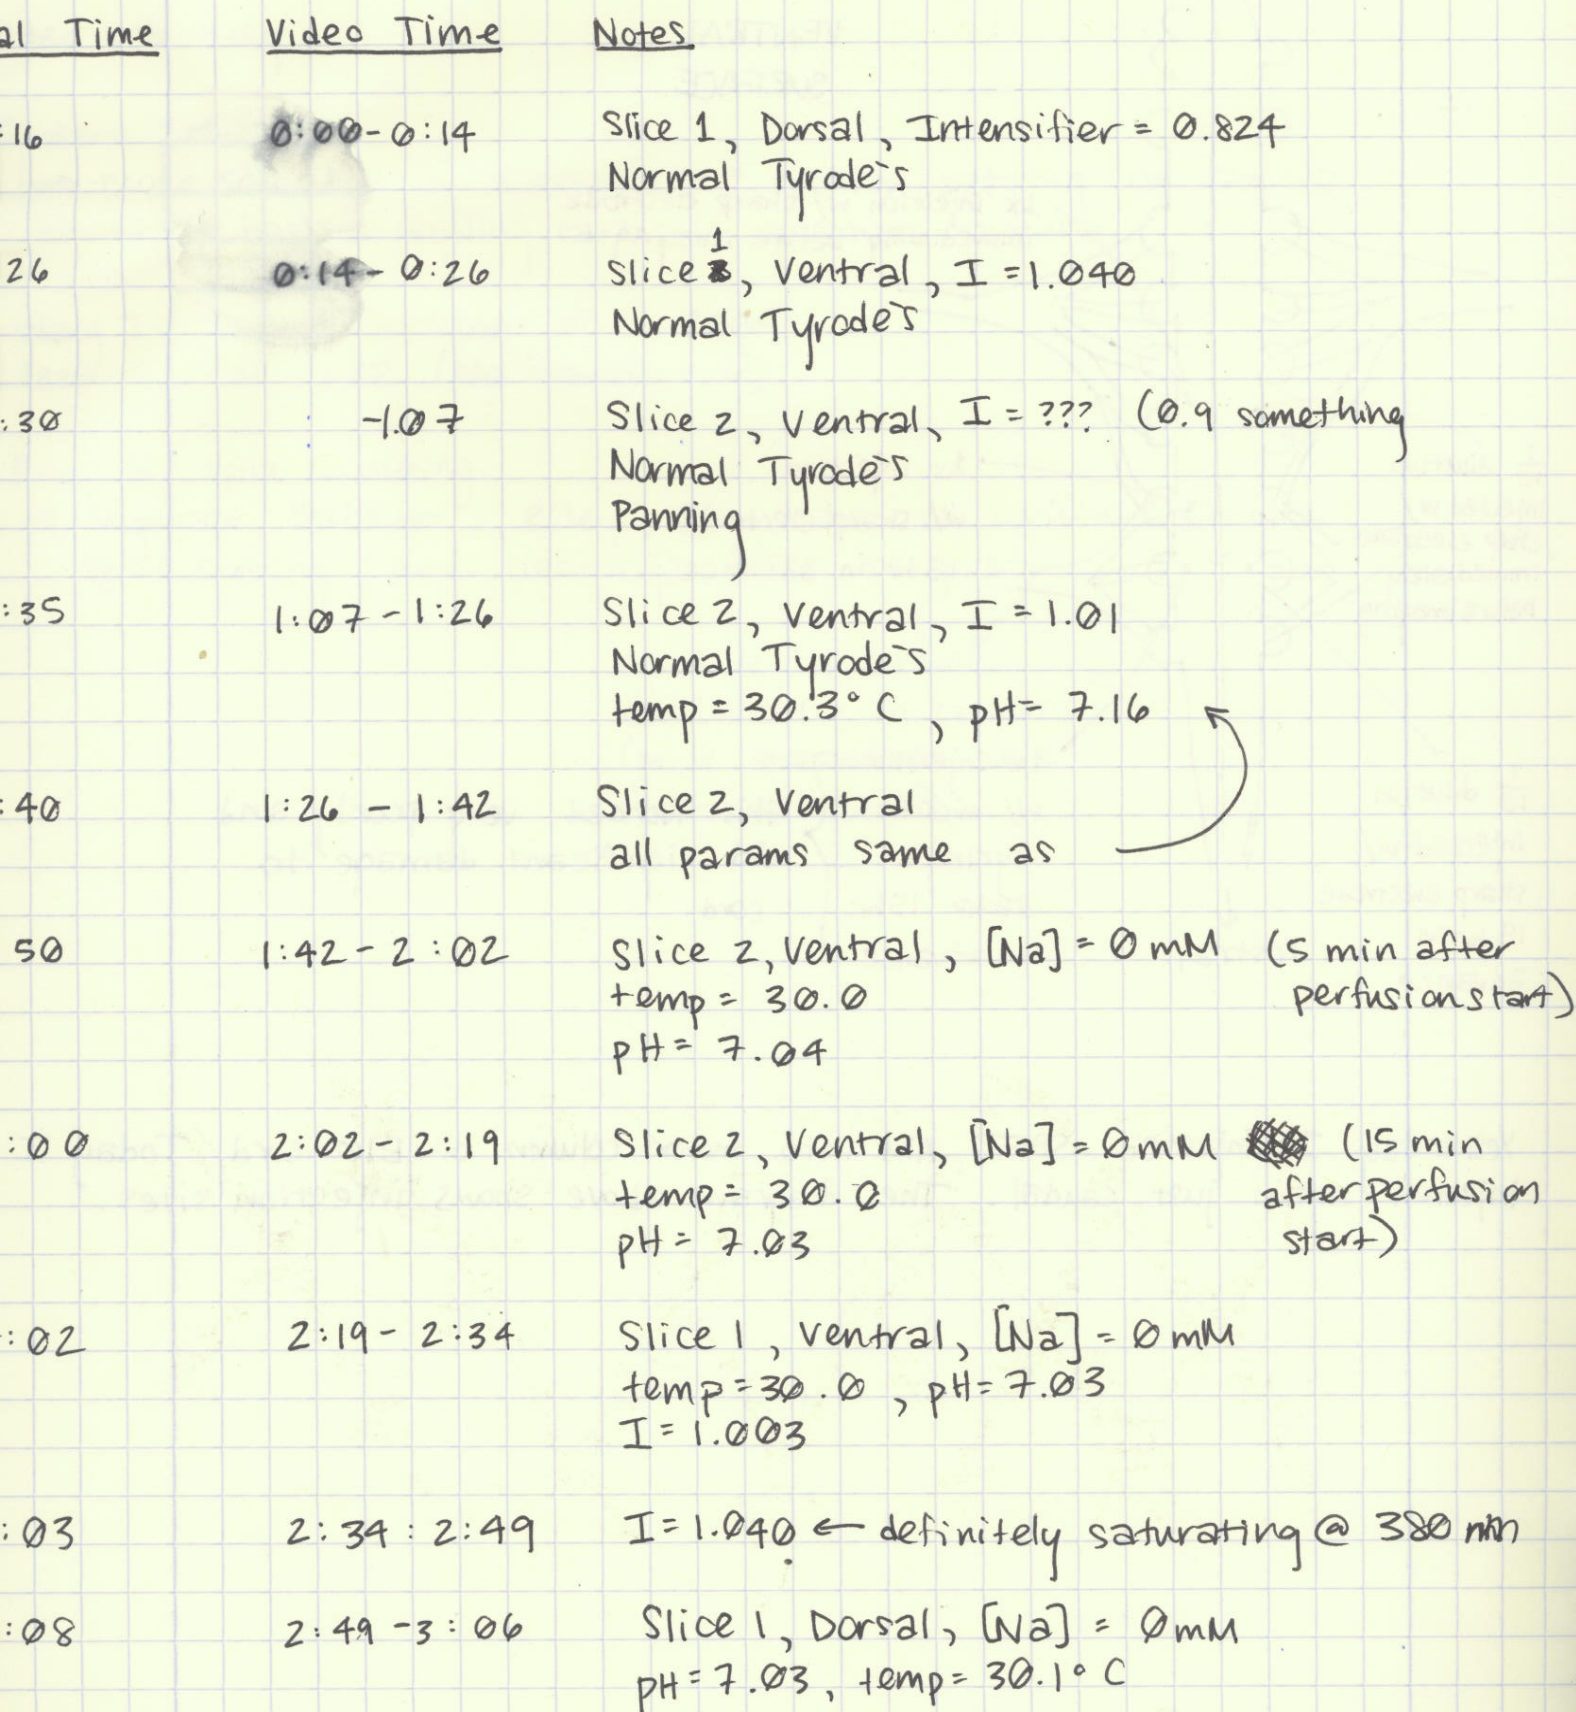 al Time Video Time Notes
:16 0:00-0:14 Slice 1, Dorsal, Intensifier = 0.824
Normal Tyrode's
26 0:14-0:26 Slice 1, Ventral, I = 1.040
Normal Tyrode's
:30 -1:07 Slice 2, Ventral, I = ??? (0.9 something
Normal Tyrode's
Panning
:35 1:07-1:26 Slice 2, Ventral, I = 1.01
Normal Tyrode's
temp = 30.3° C, pH = 7.16
:40 1:26 - 1:42 Slice 2, Ventral
all params same as
50 1:42-2:02 Slice 2, Ventral, [Na] = 0 mM (5 min after
temp = 30.0 perfusion start)
pH = 7.04
:00 2:02-2:19 Slice 2, Ventral, [Na] = 0 mM (15 min
temp = 30.0 after perfusion
pH = 7.03 start)
:02 2:19-2:34 Slice 1, Ventral, [Na] = 0 mM
temp = 30.0, pH = 7.03
I = 1.003
:03 2:34 : 2:49 I = 1.040 ← definitely saturating @ 380 nm
:08 2:49-3:06 Slice 1, Dorsal, [Na] = 0 mM
pH = 7.03, temp = 30.1° C